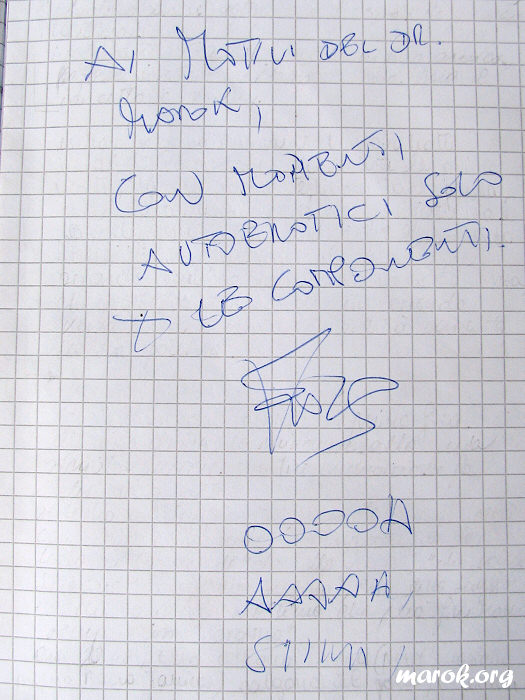 AI MOTIVI DEL DR.
MAROK,
CON MOMENTI
AUTOEROTICI SOLO
I LE COMPONENTI.
OOOOH
AAAAH,
SIIIII,
marok.org